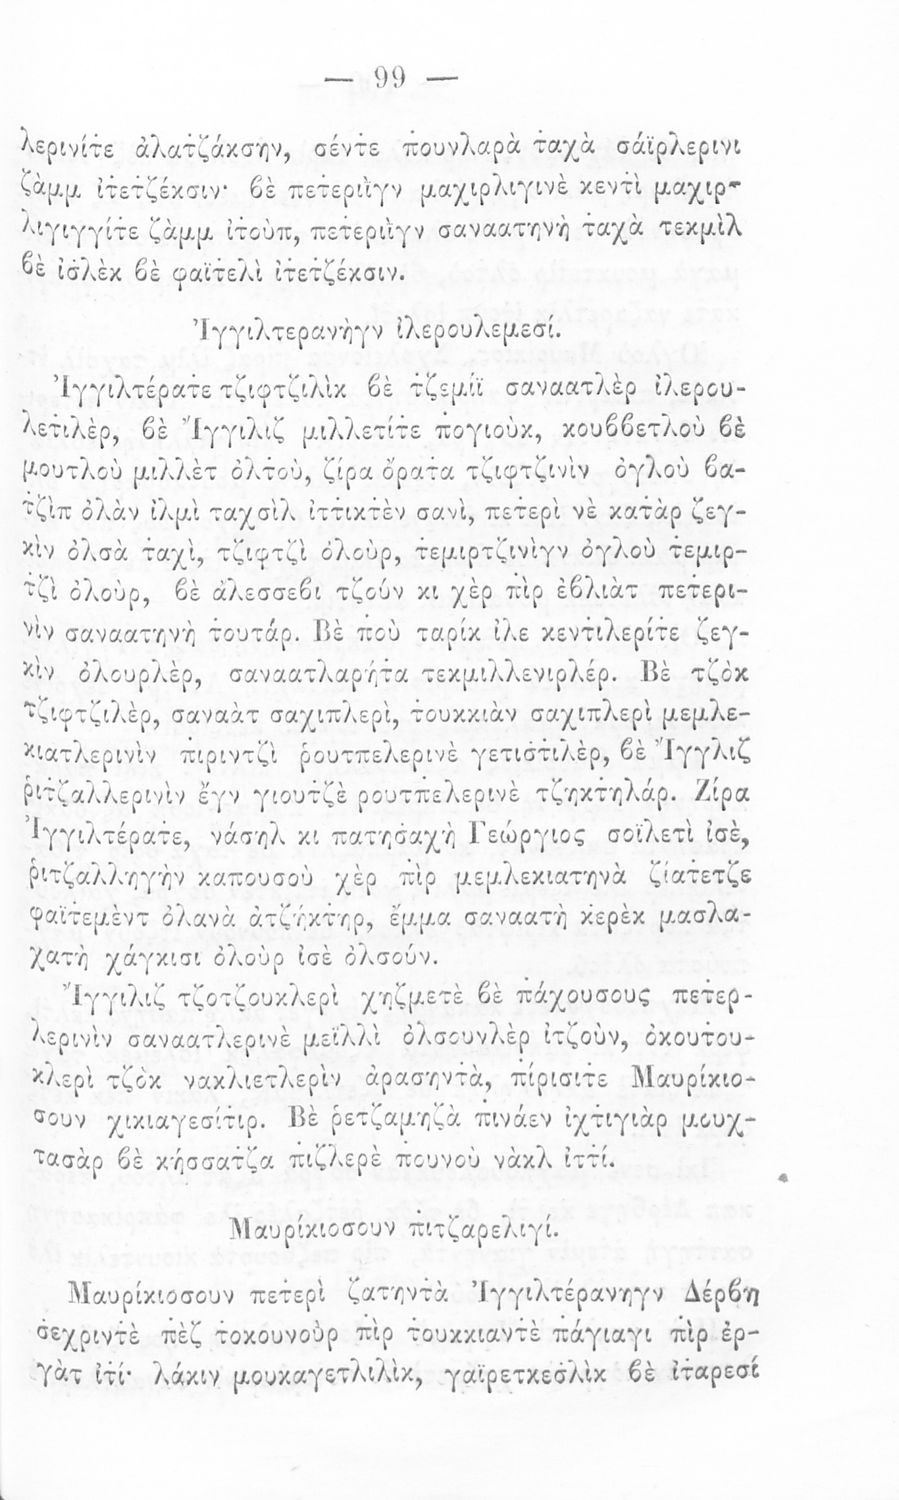 — 99 —
λερινίτε ἀλατζάκσην, σέντε πουνλαρὰ ταχὰ σάϊρλερινι
ζὰμμ ἰτετζέκσιν· βὲ πετεριὶγν μαχιρλιγινὲ κεντὶ μαχιρ-
λιγιγγίτε ζὰμμ ἰτοὺπ, πετεριὶγν σαναατηνὴ ταχὰ τεκμὶλ
βὲ ἰσλὲκ βὲ φαϊτελὶ ἰτετζέκσιν.
Ἰγγιλτερανὴγν ἰλερουλεμεσί.
Ἰγγιλτέρατε τζιφτζιλὶκ βὲ τζεμίϊ σαναατλὲρ ἰλερου-
λετιλὲρ, βὲ Ἴγγιλιζ μιλλετίτε πογιοὺκ, κουββετλοὺ βὲ
μουτλοὺ μιλλὲτ ὀλτοὺ, ζίρα ὄρατα τζιφτζινὶν ὀγλοὺ βα-
τζὶπ ὀλὰν ἰλμὶ ταχσὶλ ἰττικτὲν σανὶ, πετερὶ νὲ κατὰρ ζεγ-
κὶν ὀλσὰ ταχὶ, τζιφτζὶ ὀλοὺρ, τεμιρτζινὶγν ὀγλοὺ τεμιρ-
τζὶ ὀλοὺρ, βὲ ἀλεσσεβι τζοὺν κι χὲρ πὶρ ἐβλιὰτ πετερι-
νὶν σαναατηνὴ τουτάρ. Βὲ ποὺ ταρὶκ ἰλε κεντιλερίτε ζεγ-
κὶν ὀλουρλὲρ, σαναατλαρήτα τεκμιλλενιρλέρ. Βὲ τζὸκ
τζιφτζιλὲρ, σαναὰτ σαχιπλερὶ, τουκκιὰν σαχιπλερὶ μεμλε-
κιατλερινὶν πιριντζὶ ῥουτπελερινὲ γετιστιλὲρ, βὲ Ἴγγλιζ
ῥιτζαλλερινὶν ἔγν γιουτζὲ ρουτπελερινὲ τζηκτηλάρ. Ζίρα
Ἰγγιλτέρατε, νάσηλ κι πατησαχὴ Γεώργιος σοϊλετὶ ἰσὲ,
ῥιτζαλληγὴν καπουσοὺ χὲρ πὶρ μεμλεκιατηνὰ ζίατετζε
φαϊτεμὲντ ὀλανὰ ἀτζήκτηρ, ἔμμα σαναατὴ κερὲκ μασλα-
χατὴ χάγκισι ὀλοὺρ ἰσὲ ὀλσούν.
Ἴγγιλιζ τζοτζουκλερὶ χηζμετὲ βὲ πάχουσους πετερ-
λερινὶν σαναατλερινὲ μεϊλλὶ ὀλσουνλὲρ ἰτζοὺν, ὀκουτου-
κλερὶ τζὸκ νακλιετλερὶν ἀρασηντὰ, πίρισιτε Μαυρίκιο-
σουν χικιαγεσίτιρ. Βὲ ῥετζαμηζὰ πινάεν ἰχτιγιὰρ μουχ-
τασὰρ βὲ κήσσατζα πιζλερὲ πουνοὺ νὰκλ ἰττί.
Μαυρίκιοσουν πιτζαρελιγί.
Μαυρίκιοσουν πετερὶ ζατηντὰ Ἰγγιλτέρανηγν Δέρβη
σεχριντὲ πὲζ τοκουνοὺρ πὶρ τουκκιαντὲ πάγιαγι πὶρ ἐρ-
γὰτ ἰτί· λάκιν μουκαγετλιλὶκ, γαϊρετκεσλὶκ βὲ ἰταρεσὶ